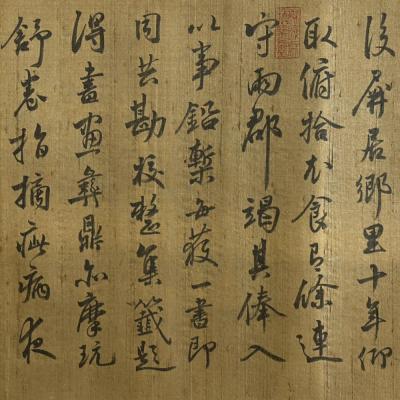 後屏居鄉里十年仰
取俯拾衣食有餘連
守兩郡竭其俸入
以事鉛槧每獲一書即
同共勘校整集籤題
得書畫彝鼎亦摩玩
舒卷指摘疵病夜